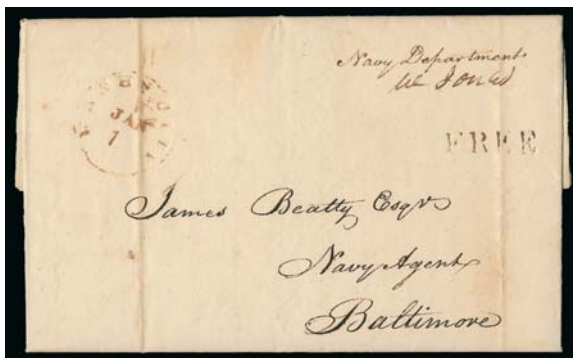 Navy Department
W Jones
JAN
7
FREE
James Beatty Esqr
Navy Agent
Baltimore